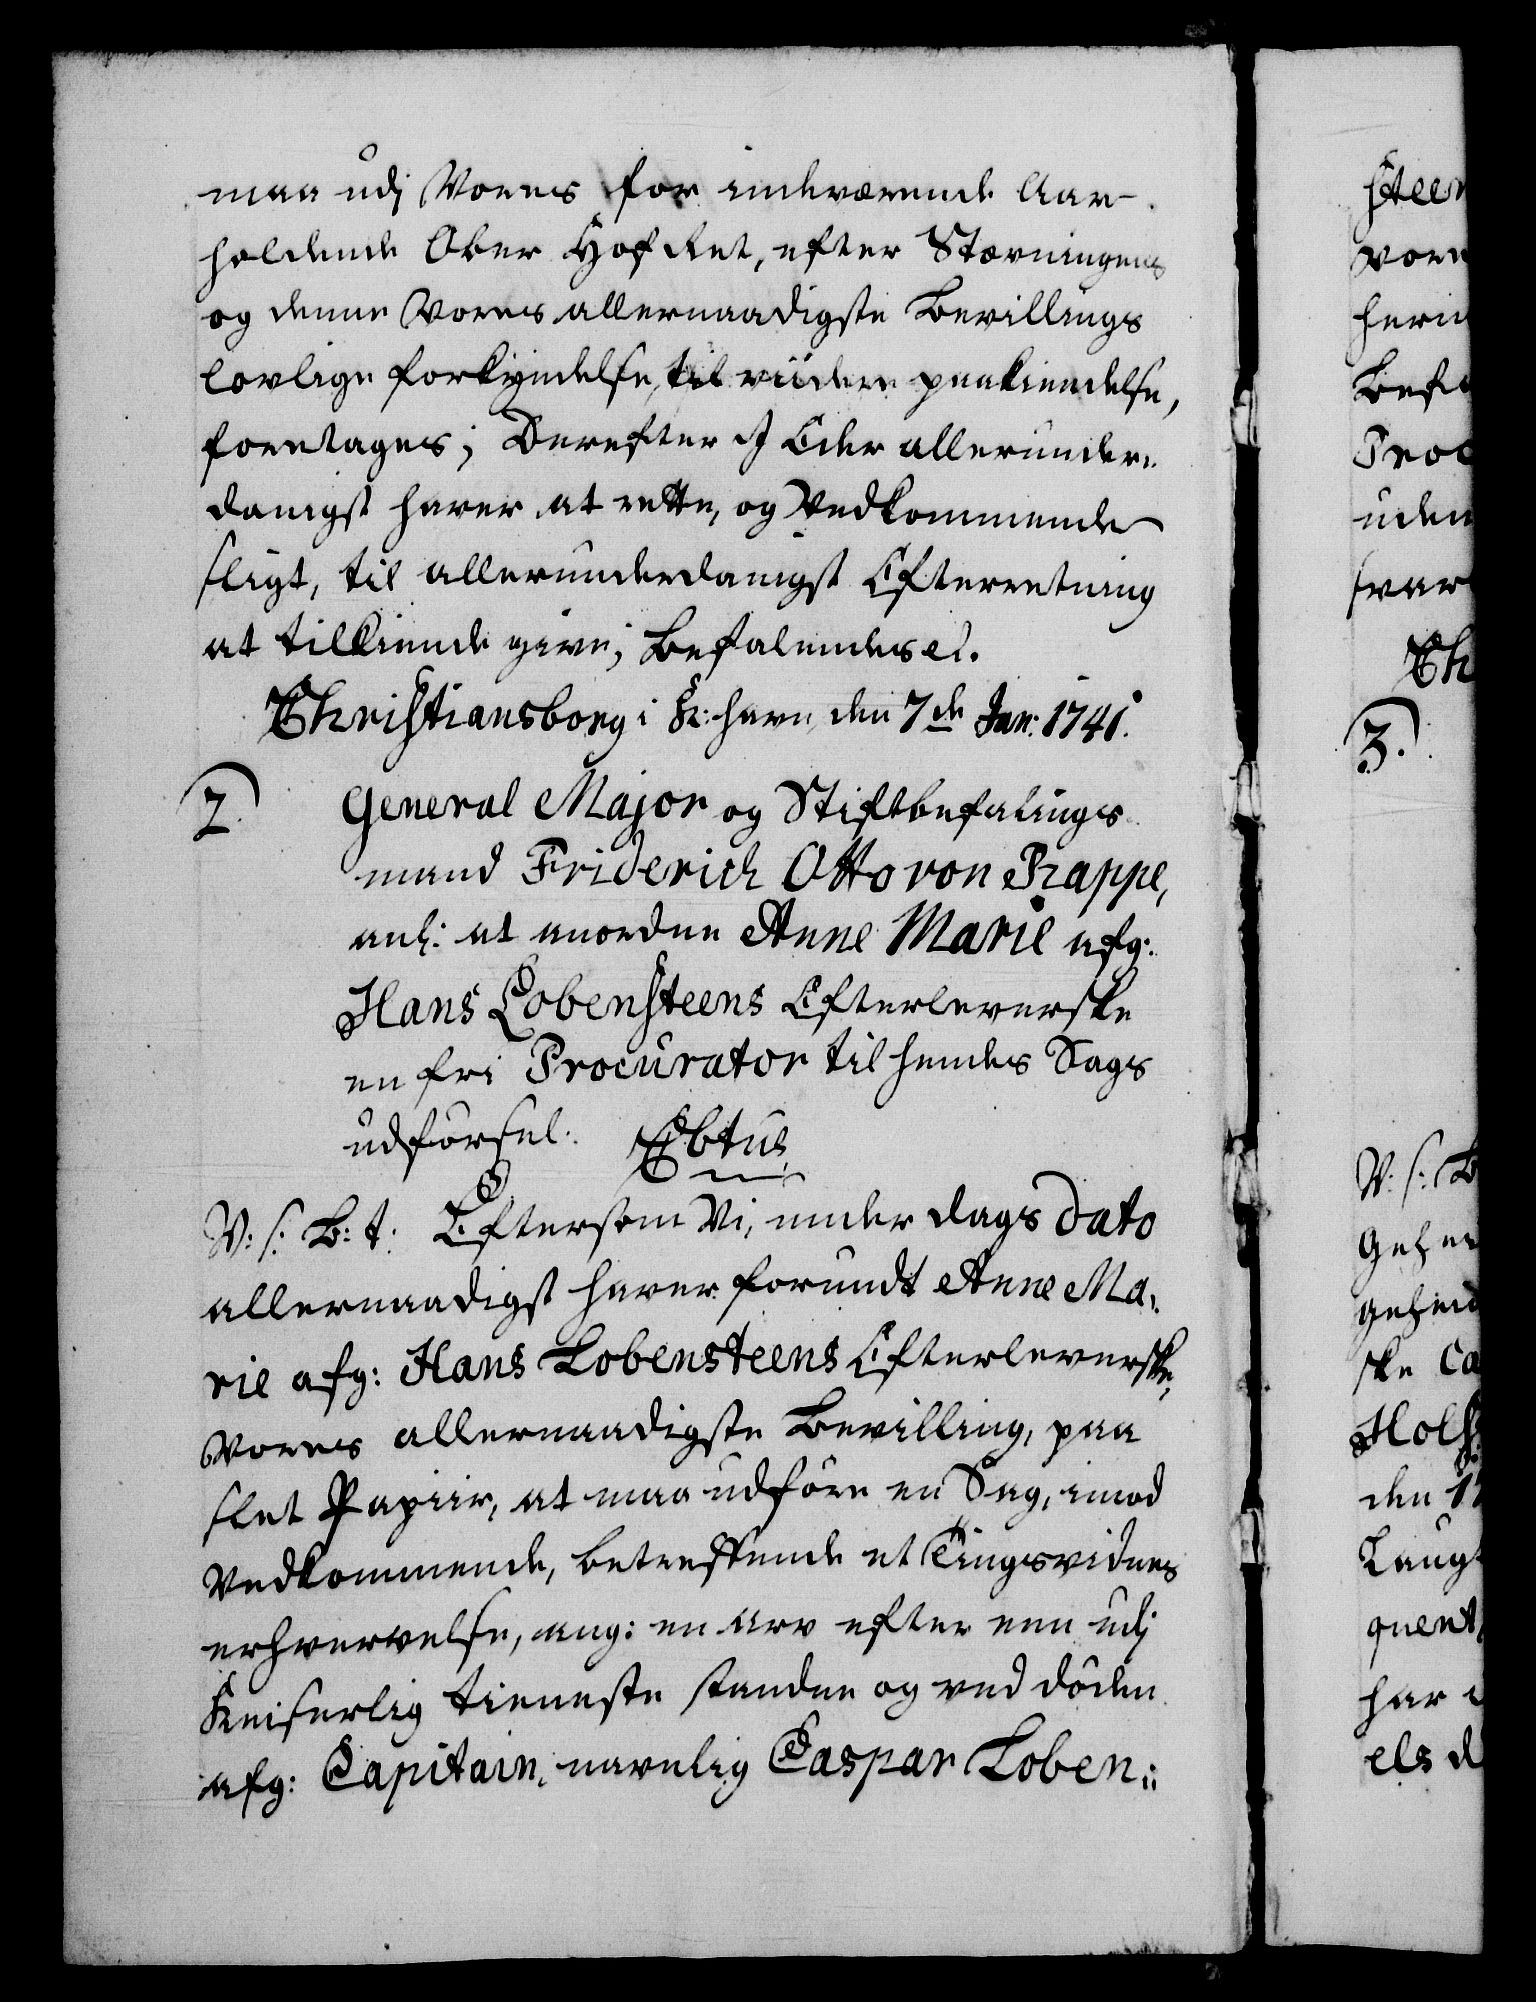 maa udj Vores for indeværende Aar
holdende Ober Hof Ret, efter Stævningens
og denne Vores allernaadigste Bevillings
lovlige forkyndelse, til viidere paakiendelse,
foretages; Derefter I Eder allerunder-
danigst haver at rette, og Vedkommende
sligt, til allerunderdanigst Efterretning
at tilkiende give; Befalendes etc.
Christiansborg i K: havn, den 7de Jan: 1741.
2. General Major og Stiftbefalings
mand Friderich Otto von Rappe,
anl: at anordne Anne Marie afg:
Hans Lobensteens Efterleverske
en fri Procurator til hendes Sags
udførsel. Ebtus
V: s: B: t: Eftersom Vi, under dags dato
allernaadigst haver forundt Anne Ma-
rie afg: Hans Lobensteens Efterleverske,
Vores allernaadigste Bevilling, paa
slet Papiir, at maa udføre en Sag, imod
Vedkommende, betreffende et Tingsvidnes
erhvervelse, ang: en Arv efter een udj
Keiserlig tieneste standne og ved døden
afg: Capitain, navnlig Caspar Loben-
steen
vore
Befa
Proc
uden
svar
Ch
3.
V: s: B
Gehei
Geheid
ske Ca
Hols
den 1
Laug
quent
har
els d